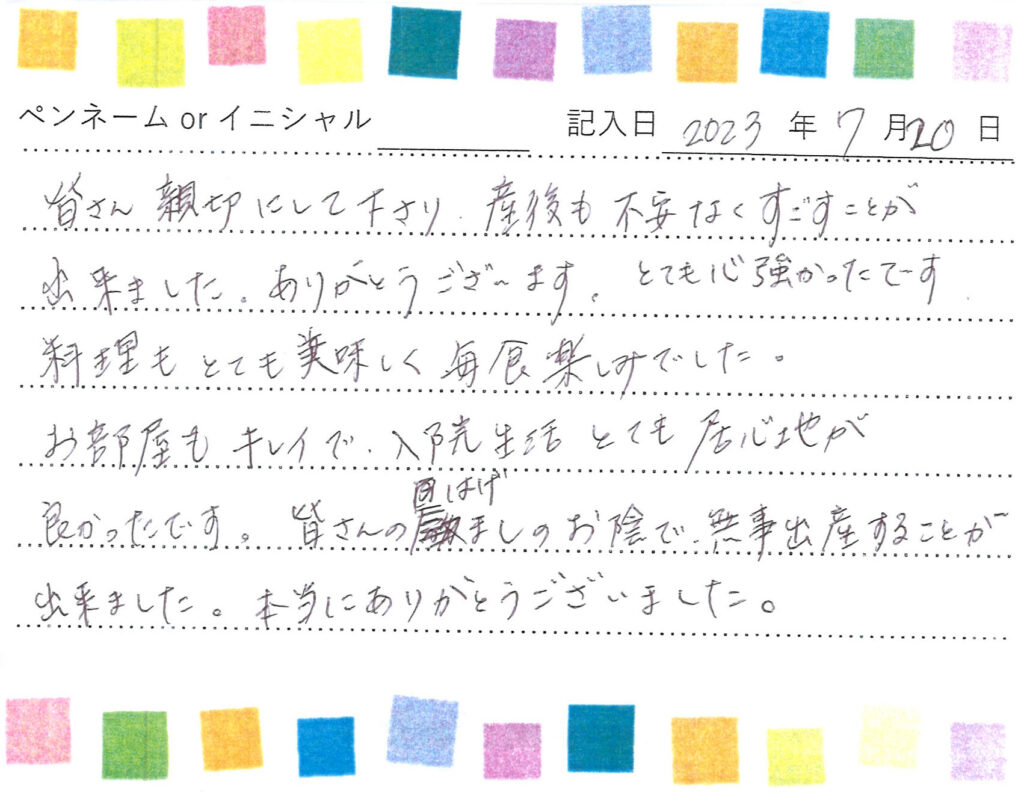 ペンネーム or イニシャル 記入日 2023 年 7 月 20 日
皆さん 親切にして下さり、産後も 不安なくすごすことが
出来ました。ありがとうございます。とても心強かったです
料理も とても美味しく 毎食楽しみでした。
お部屋も キレイで、入院生活 とても 居心地が
良かったです。皆さんのはげましのお陰で、無事出産することが
出来ました。本当にありがとうございました。